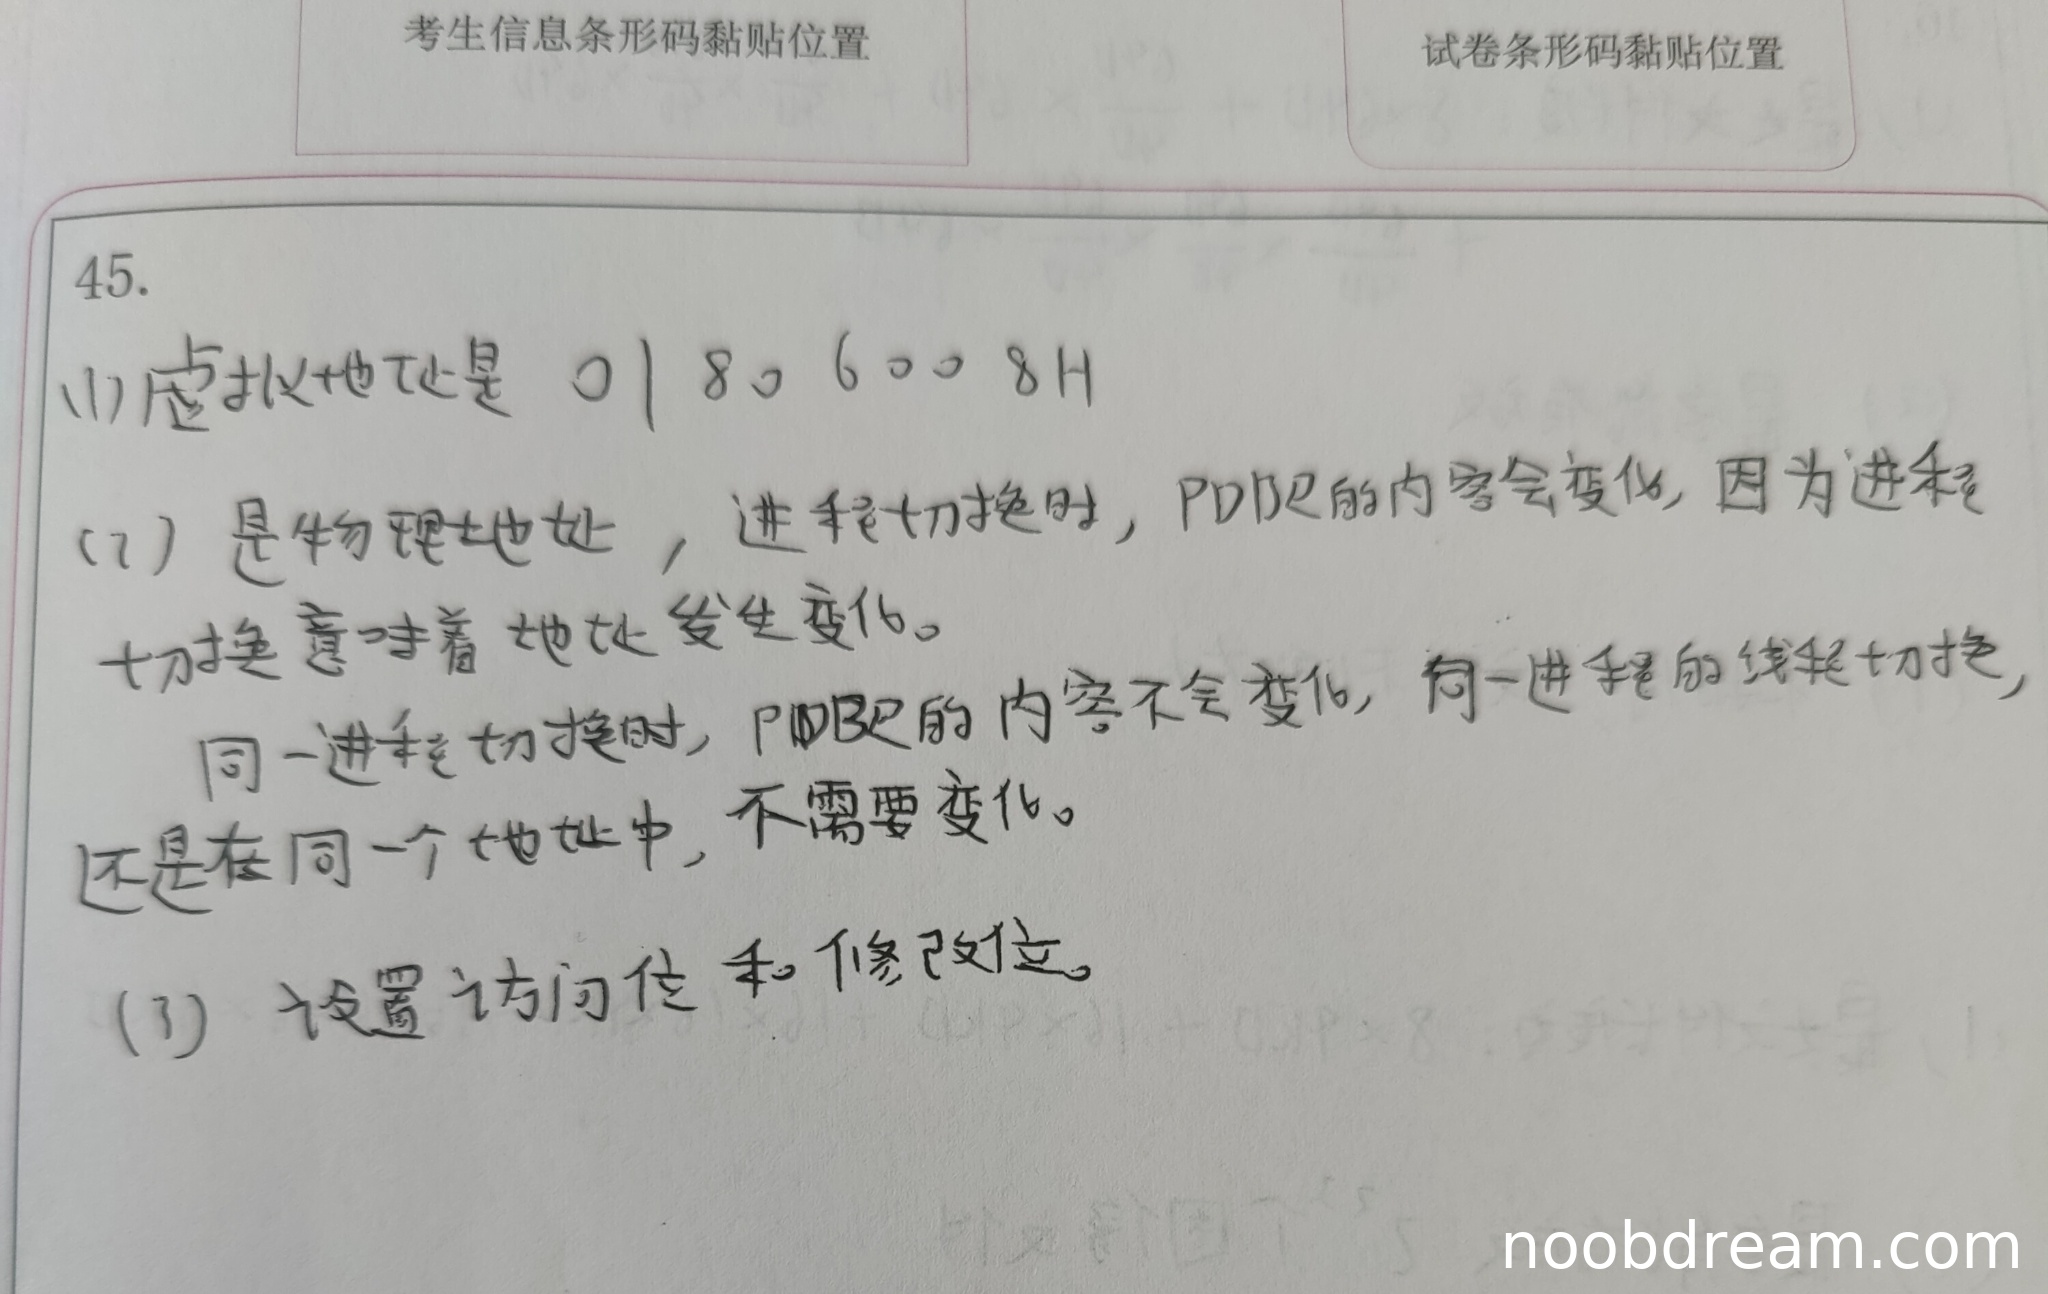 考生信息条形码黏贴位置
试卷条形码黏贴位置
45.
(1) 虚拟地址是 01806008H
(2) 是物理地址，进程切换时，PDBR的内容会变化，因为进程
切换意味着地址发生变化。
同一进程切换时，PDBR的内容不会变化，同一进程的线程切换，
还是在同一个地址中，不需要变化。
(3) 设置访问位和修改位。
noobdream.com